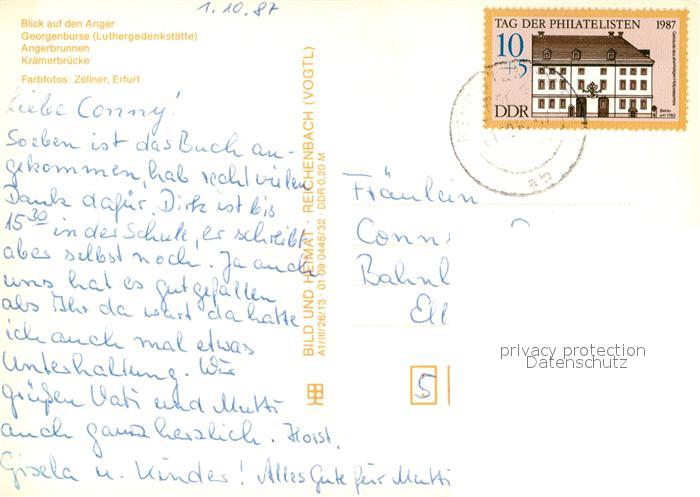 1.10.87
Blick auf den Anger
Georgenburse (Luthergedenkstätte)
Angerbrunnen
Krämerbrücke
Farbfotos: Zöllner, Erfurt
Liebe Conny!
Soeben ist das Buch an-
gekommen, hab recht vielen
Dank dafür. Dirk ist bis
15 30 in der Schule, er schreibt
aber selbst noch. Ja auch
uns hat es gut gefallen
als Ihr da wart da hatte
ich auch mal etwas
Unterhaltung. Wir
grüßen Vati und Mutti
auch ganz herzlich. Horst,
Gisela u. Kinder! Alles Gute für Mutti
BILD UND HEIMAT · REICHENBACH (VOGTL)
A1/III/26/13 01 09 0445/32 · DDR 0,20 M
TAG DER PHILATELISTEN 1987
10
+5
DDR
Berlin
um 1760
Fräulein
Conn
Bahnh
Ell
5
privacy protection
Datenschutz